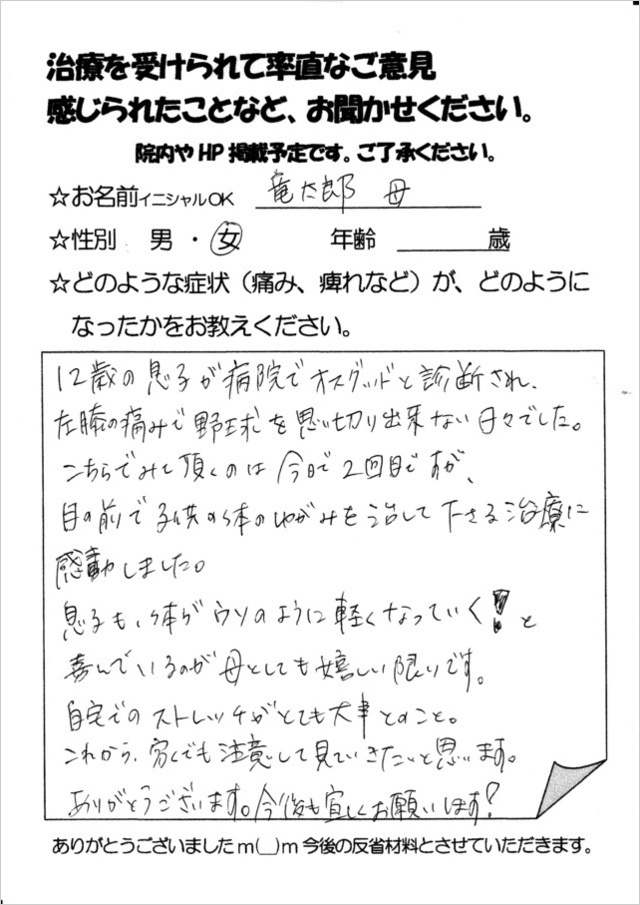 治療を受けられて率直なご意見
感じられたことなど、お聞かせください。
院内やHP掲載予定です。ご了承ください。
☆お名前イニシャルOK 竜太郎 母
☆性別 男・女 年齢 歳
☆どのような症状（痛み、痺れなど）が、どのように
なったかをお教えください。
12歳の息子が病院でオスグッドと診断され、
左膝の痛みで野球を思い切り出来ない日々でした。
こちらでみて頂くのは今日で2回目ですが、
目の前で子供の体のゆがみを治して下さる治療に
感動しました。
息子も、体がウソのように軽くなっていく!と
喜んでいるのが母としても嬉しい限りです。
自宅でのストレッチがとても大事とのこと。
これから、家でも注意して見ていきたいと思います。
ありがとうございます。今後も宜しくお願いします!
ありがとうございましたm(__)m今後の反省材料とさせていただきます。